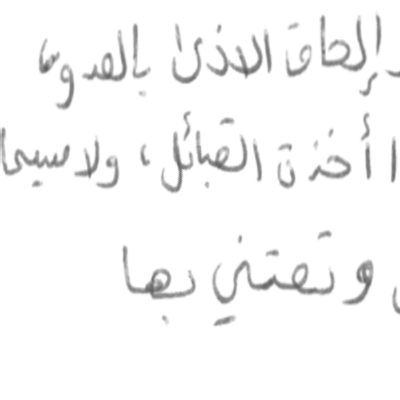 إلحاق الاذى بالعدو،
أخذت القبائل، ولاسيما
وتعتني بها